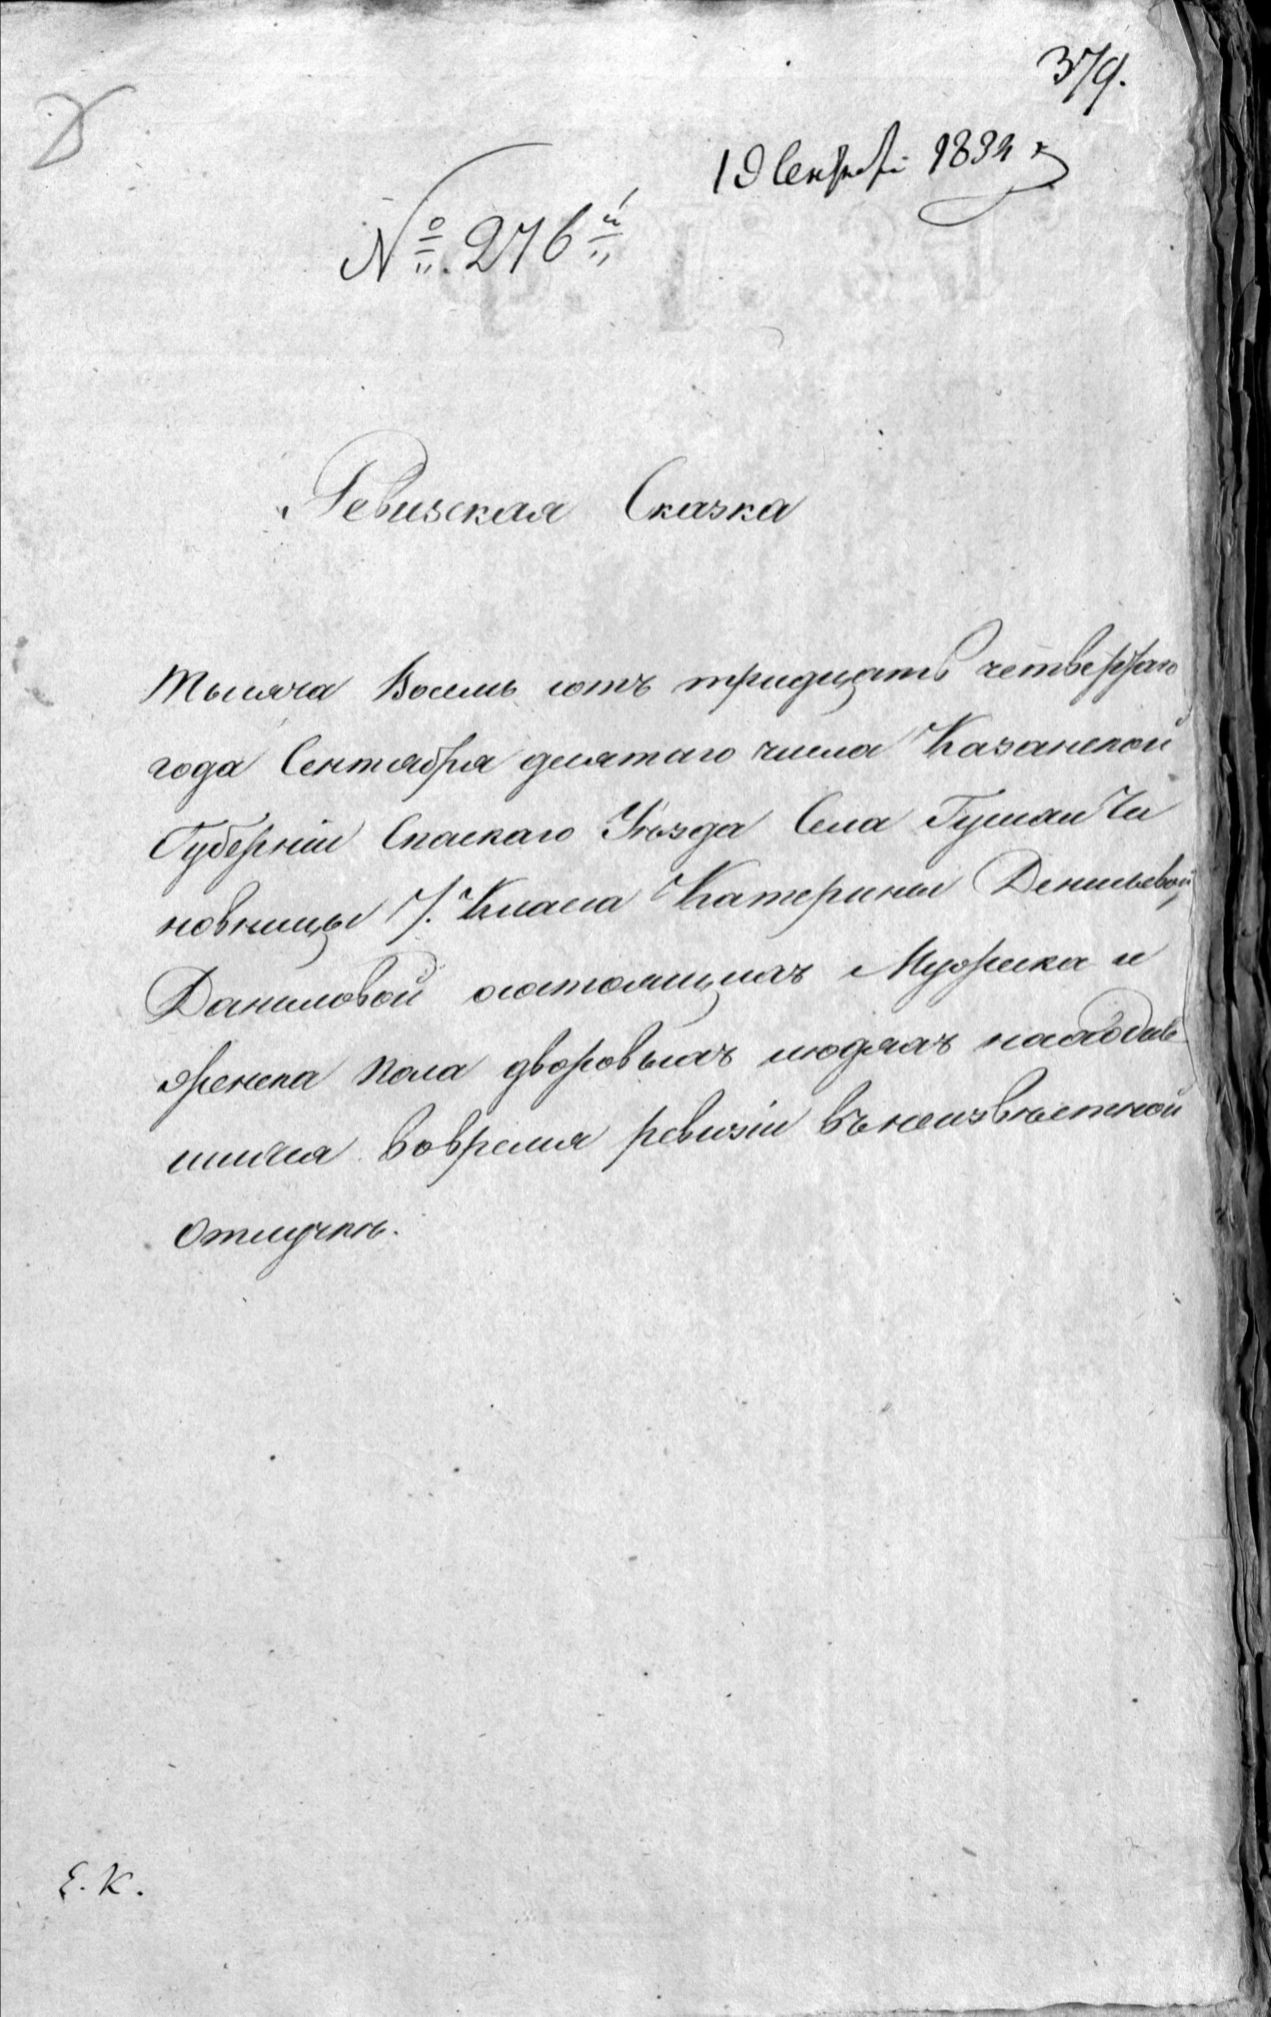 379.
19 Сентября 1834 г
№ 276й
Ревиская Сказка
тысяча Восемь сотъ тридцать четвертаго
года Сентября десятаго числа Казанской
Губерніи Спаскаго Уѣзда Села Гусиан Чи
новницы 7. Класа Катерины Денисьевой
Даниловой состоящихъ Мужеска и
женска пола дворовыхъ людяхъ находив
шихся вовремя ревизіи въ неизвѣстной
отлучкѣ.
Е. К.